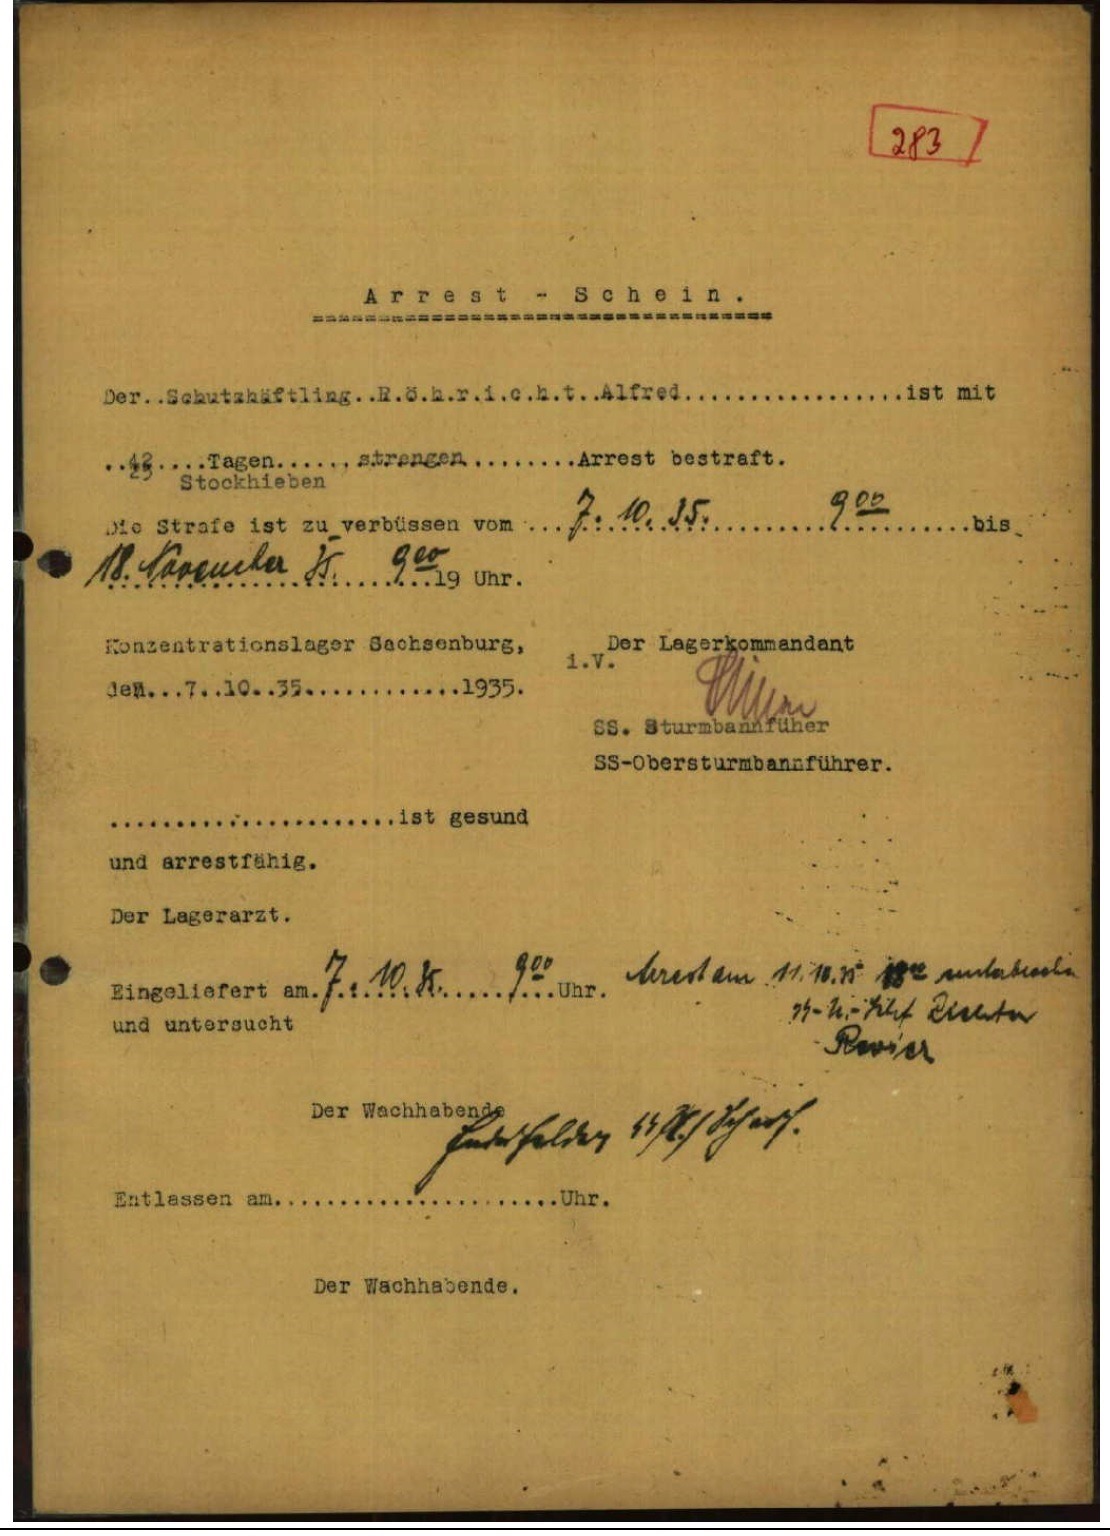 283
Arrest - Schein.
Der..Schutzhäftling..R.ö.h.r.i.c.h.t..Alfred.................ist mit
..42....Tagen......strengen........Arrest bestraft.
25 Stockhieben
Die Strafe ist zu verbüssen vom ...7.10.35..........9 00.......bis
18. November 35. 9 00 19 Uhr.
Konzentrationslager Sachsenburg, Der Lagerkommandant
i.V.
den...7..10..35............1935.
SS. Sturmbannfüher
SS-Obersturmbannführer.
......................ist gesund
und arrestfähig.
Der Lagerarzt.
Eingeliefert am.7.10.35......9 00..Uhr. Arrest am 11.10.35 18 00 unterbrochen
und untersucht
Revier
Der Wachhabende
Entlassen am.....................Uhr.
Der Wachhabende.